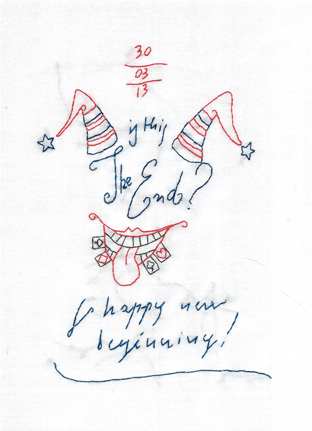 30
03
13
is this
The End?
happy new
beginning!